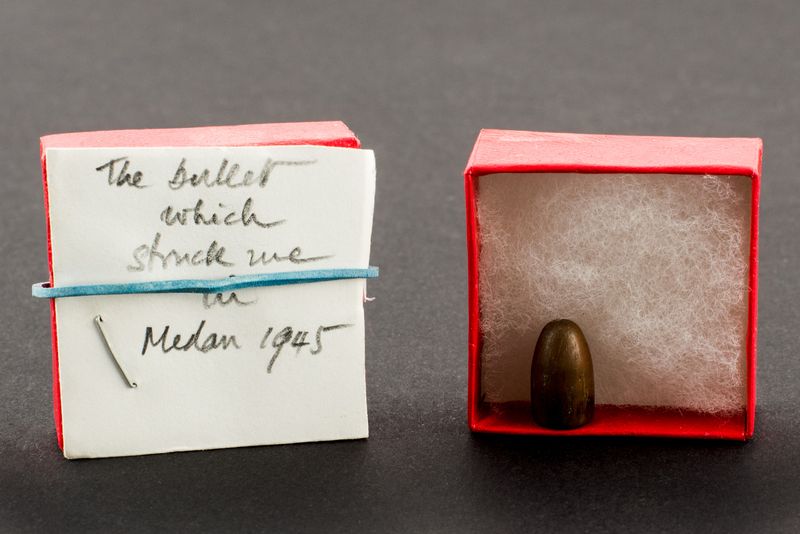 The bullet
which
struck me
in
Medan 1945